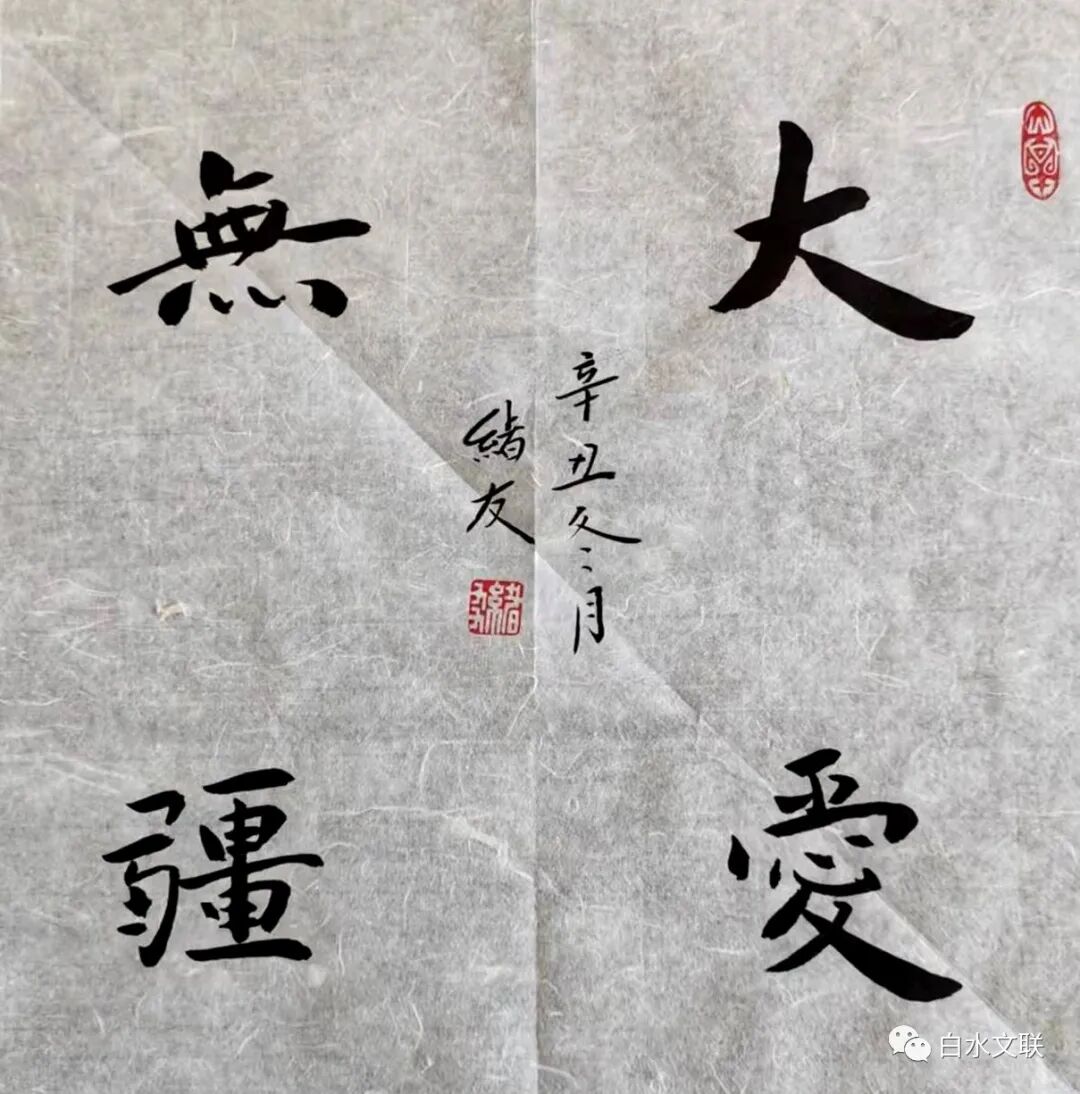 大愛
無疆
辛丑冬月
緒友
緒友
白水文联